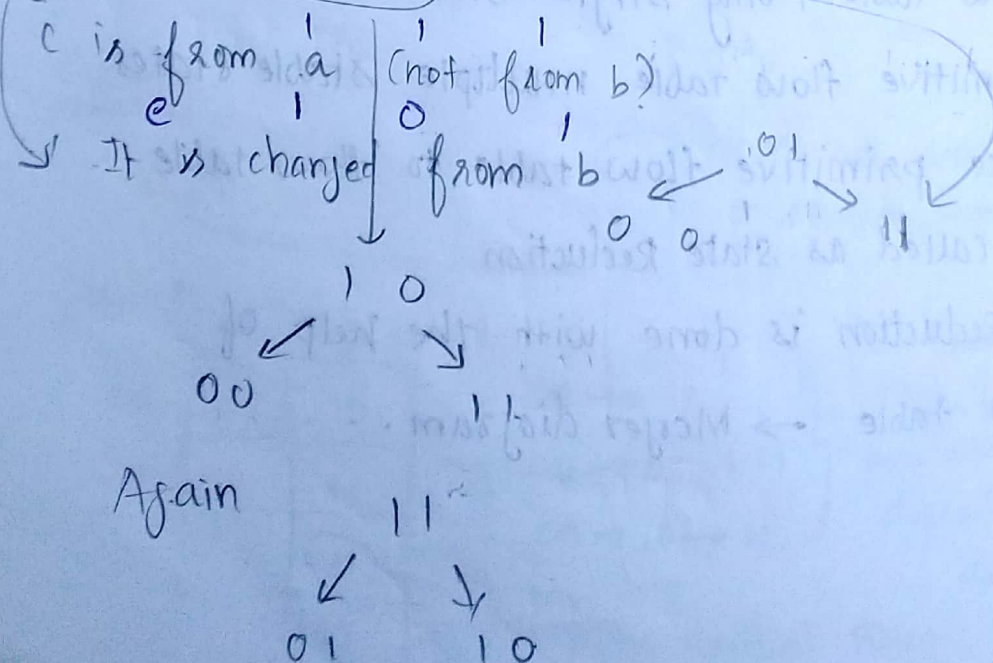 1 1 1
c is from a (not from b?)
e 1 0 1
It is changed from b 01
0 0 11
1 0
00 11
Again 11
01 10